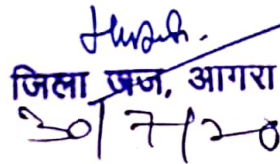 जिला जज, आगरा
30/7/20